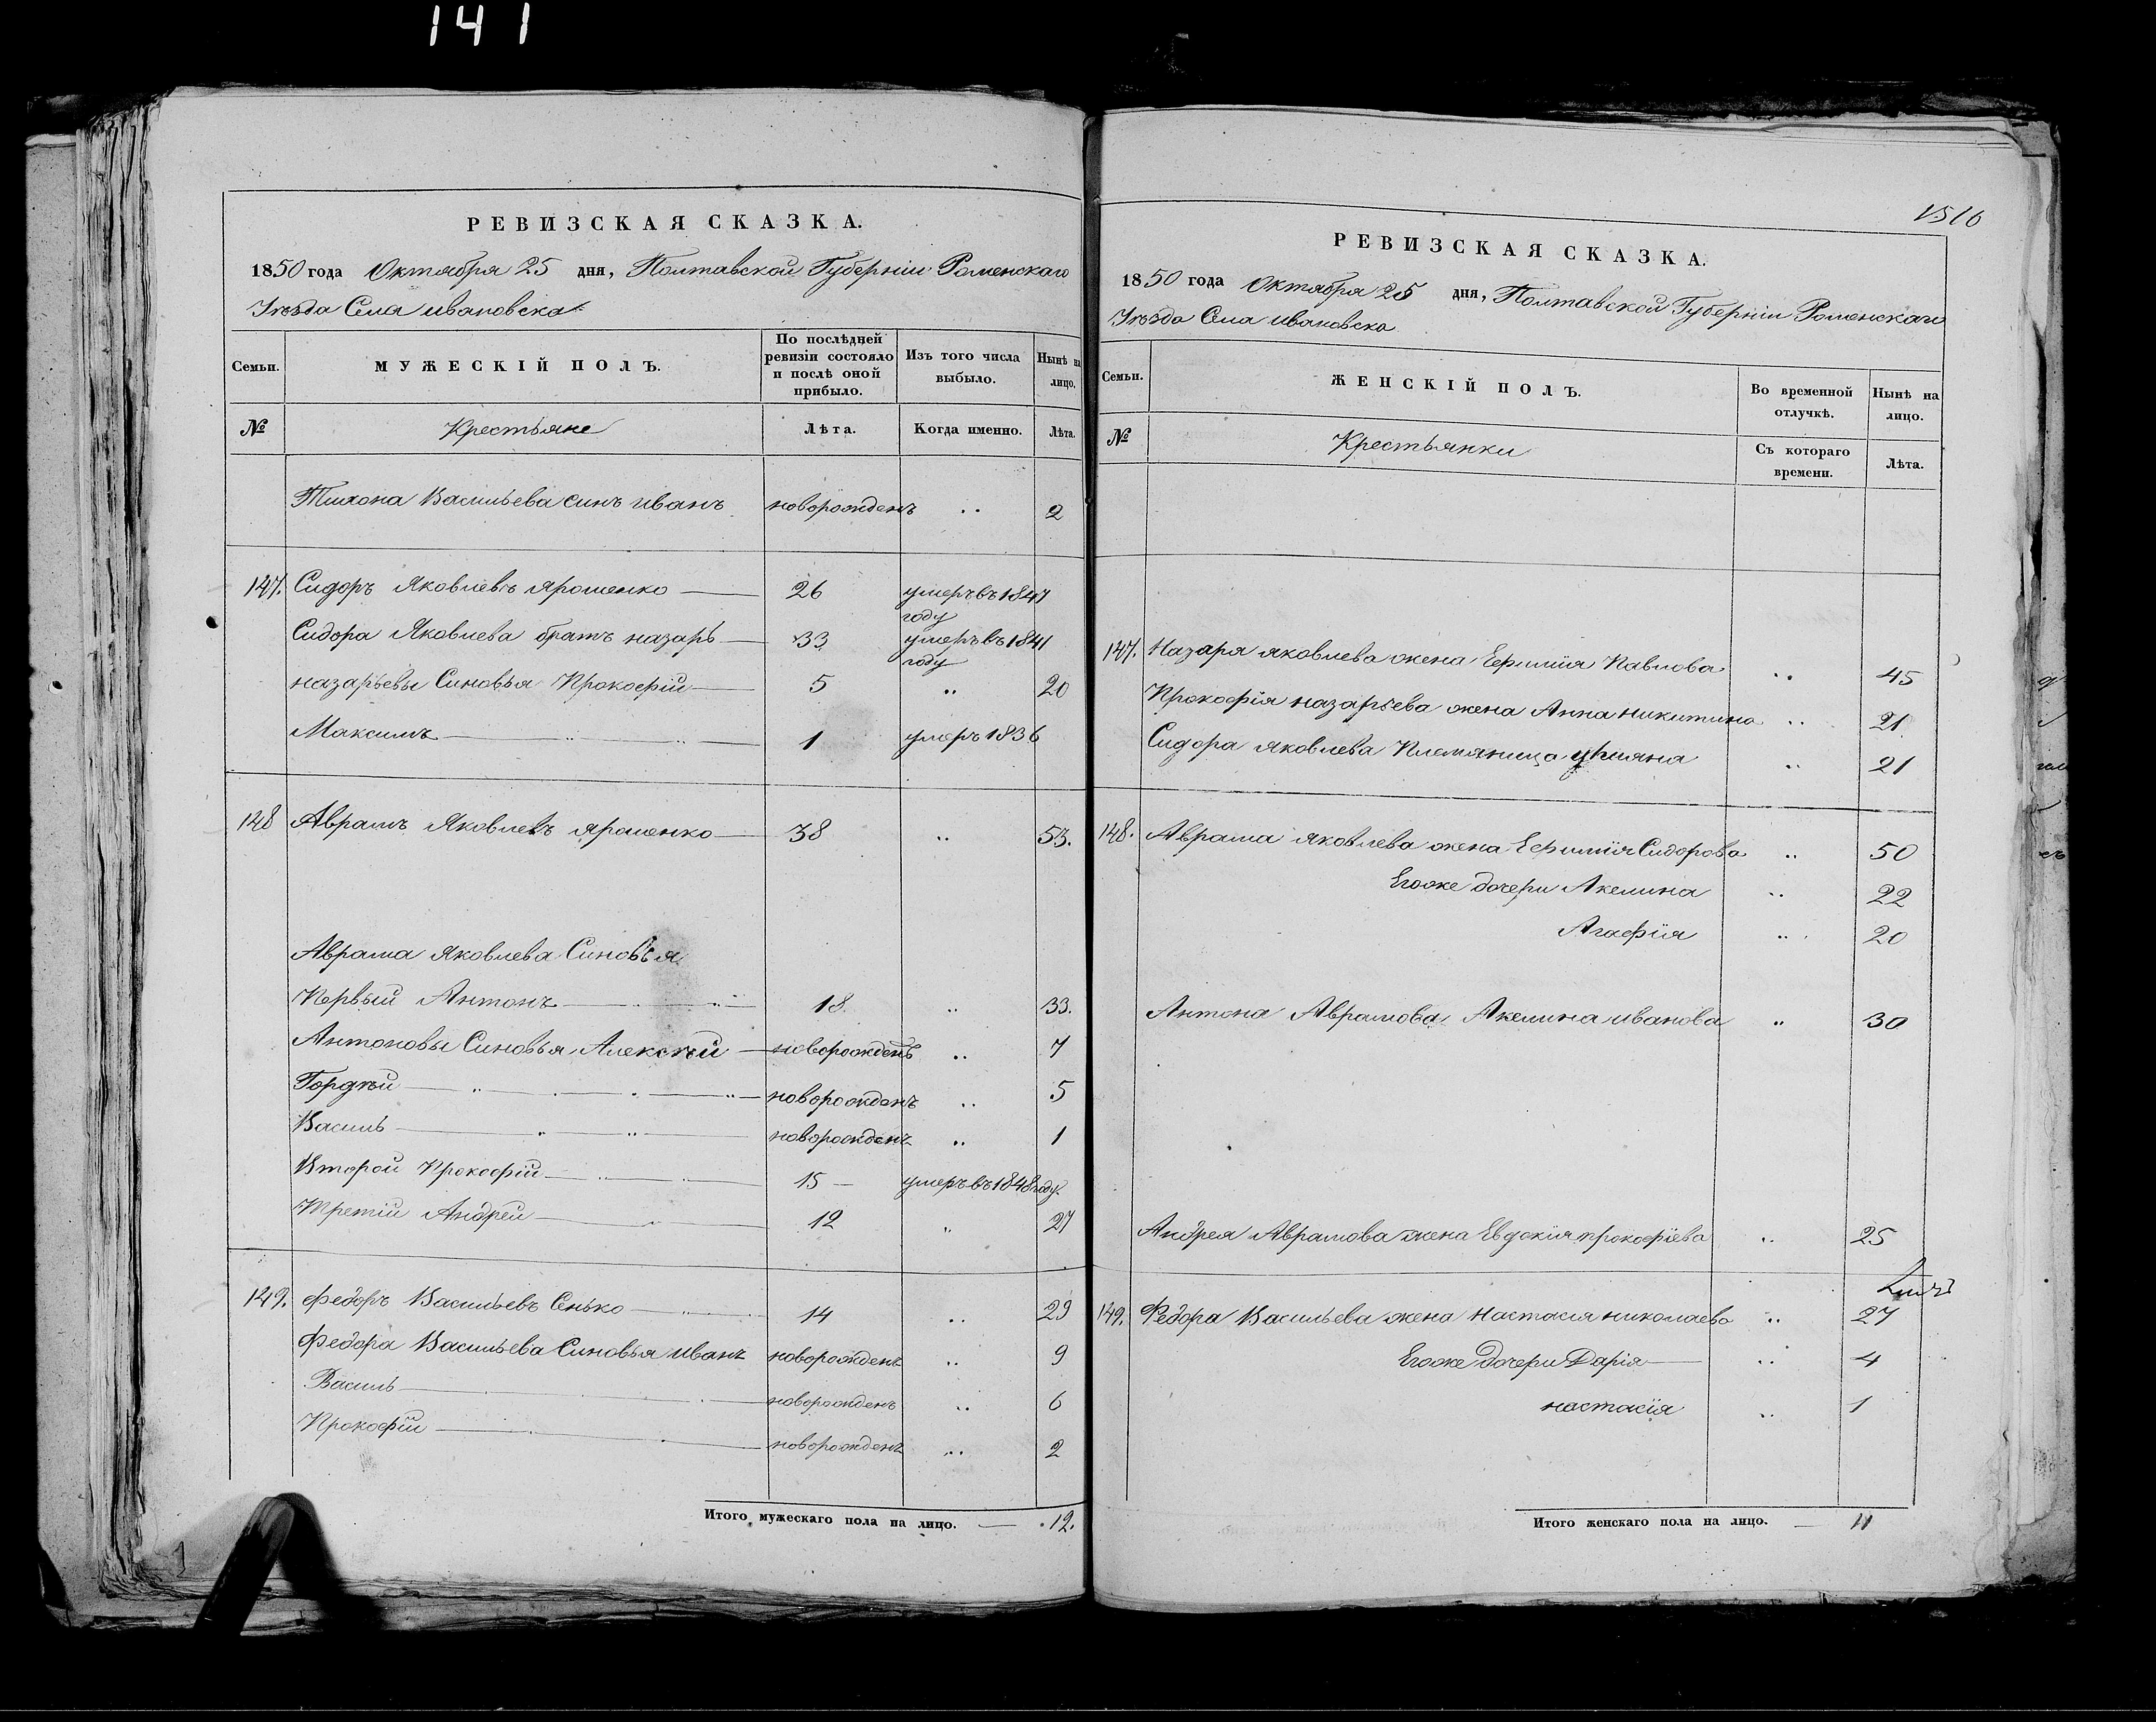 141
РЕВИЗСКАЯ СКАЗКА.
1850 года Октября 25 дня, Полтавской Губерніи Роменскаго
Уѣзда Села ивановска
Семьи. МУЖЕСКІЙ ПОЛЪ. По послѣдней ревизіи состояло и послѣ оной прибыло. Изъ того числа выбыло. Нынѣ на лицо.
№ Крестьяне Лѣта. Когда именно. Лѣта.
Тихона Васильева синъ иванъ новорожденъ .. 2
147. Сидоръ Яковлевъ ярошенко 26 умеръ въ 1847 году
Сидора Яковлева братъ назаръ 33 умеръ въ 1841 году
назарьевы Синовья Прокофій 5 .. 20
Максимъ 1 умеръ 1836
148 Аврамъ Яковлевъ ярошенко 38 .. 53.
Аврама Яковлева Синовья
Первый Антонъ 18 .. 33.
Антоновы Синовья Алексѣй новорожденъ .. 7
Гордѣй новорожденъ .. 5
Василь новорожденъ .. 1
Второй Прокофій 15 умеръ въ 1848 году.
Третій Андрей 12 .. 27
149. Федоръ Васильевъ Сенько 14 .. 29
Федора Васильева Синовья иванъ новорожденъ .. 9
Василь новорожденъ .. 6
Прокофій новорожденъ .. 2
Итого мужескаго пола на лицо. 12.
1516
РЕВИЗСКАЯ СКАЗКА.
1850 года Октября 25 дня, Полтавской Губерніи Роменскаго
Уѣзда Села ивановска
Семьи. ЖЕНСКІЙ ПОЛЪ. Во временной отлучкѣ. Нынѣ на лицо.
№ Крестьянки Съ котораго времени. Лѣта.
147. Назара яковлева жена Ефимія Павлова .. 45
Прокофія назарьева жена Анна никитина .. 21
Сидора яковлева Племяница улияна .. 21
148. Аврама яковлева жена Ефимія Сидорова .. 50
Егоже дочери Акелина .. 22
Агафія .. 20
Антона Аврамова Акелина иванова .. 30
Андрея Аврамова жена Евдокия прокофіева .. 25
149. Федора Васильева жена Настасия николаева .. 27
Егоже дочери Дарія .. 4
настасія .. 1
Итого женскаго пола на лицо. 11